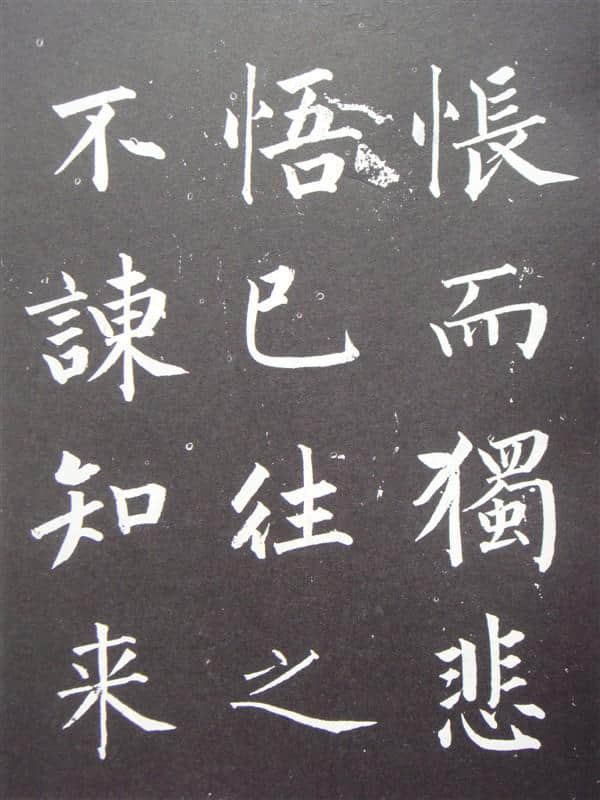 悵而獨悲
悟已往之
不諫知来